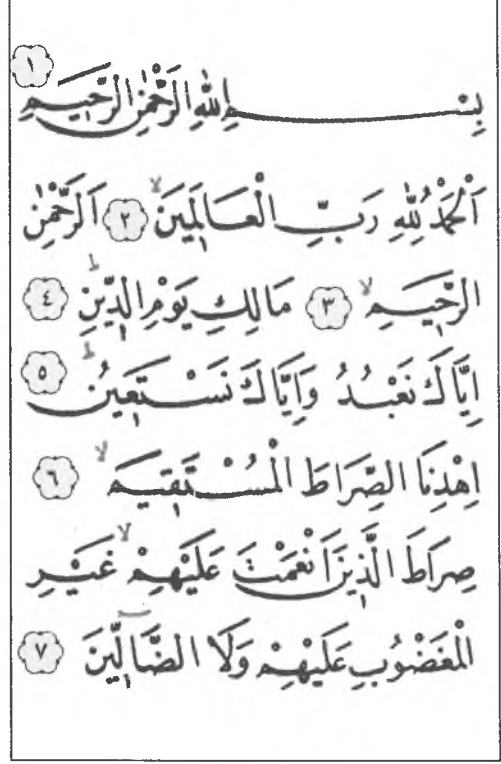 بِسْــــــمِ اللهِ الرَّحْمٰنِ الرَّحِيــمِ ١
اَلْحَمْدُ لِلّٰهِ رَبِّ الْعَالَمِينَۙ ٢ اَلرَّحْمٰنِ
الرَّحِيــمِۙ ٣ مَالِكِ يَوْمِ الدِّينِۜ ٤
اِيَّاكَ نَعْبُدُ وَاِيَّاكَ نَسْــتَعِينُۜ ٥
اِهْدِنَا الصِّرَاطَ الْمُسْــتَقِيمَۙ ٦
صِرَاطَ الَّذِينَ اَنْعَمْتَ عَلَيْهِمْۙ غَيْــرِ
الْمَغْضُوبِ عَلَيْهِمْ وَلَا الضَّٓالِّينَ ٧